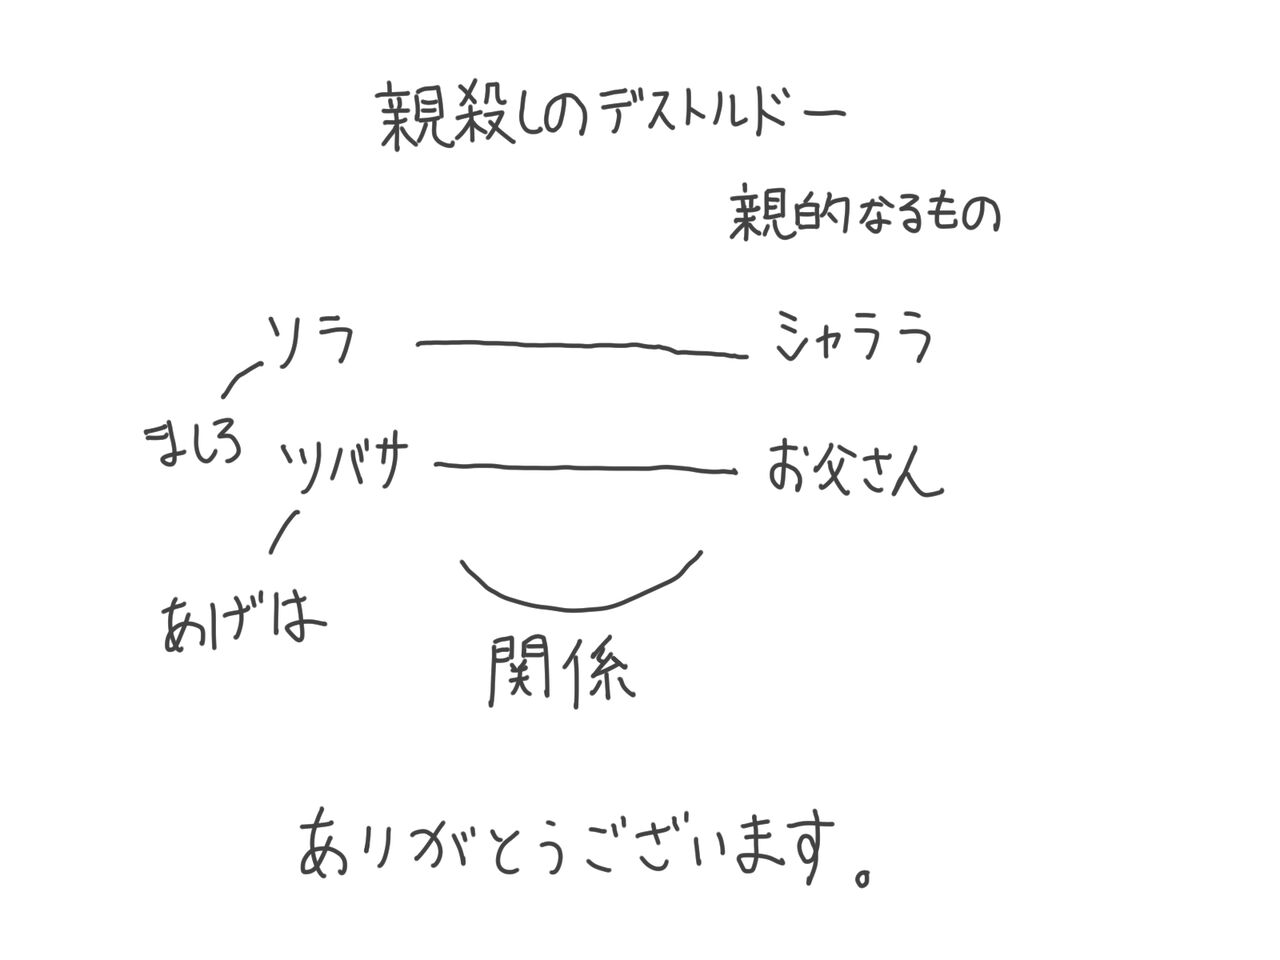 親殺しのデストルドー
親的なるもの
ソラ シャララ
ましろ
ツバサ お父さん
あげは
関係
ありがとうございます。